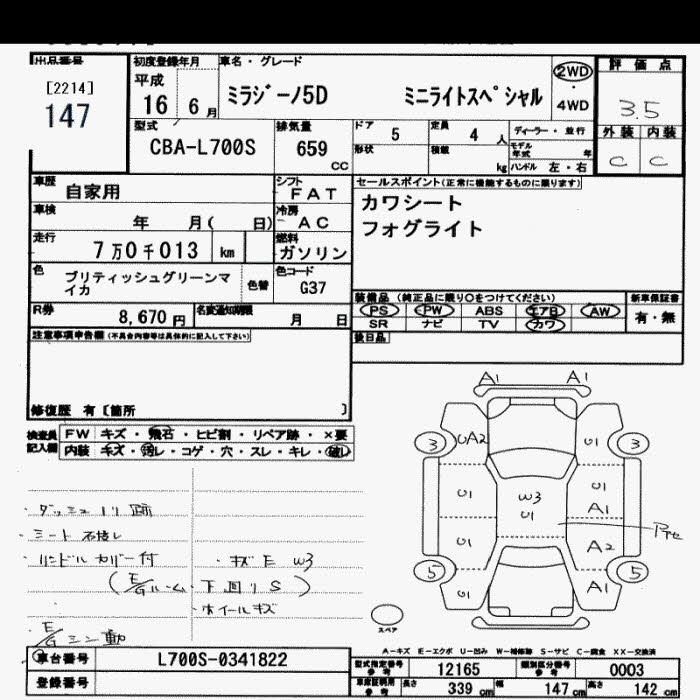 出品番号
[2214]
147
初度登録年月
平成
16 6 月
車名・グレード
ミラジーノ5D ミニライトスペシャル
2WD
・
4WD
評価点
3.5
外装 内装
C C
型式
CBA-L700S
排気量
659
cc
ドア 5
定員 4 人
ディーラー・並行
形状
積載 kg
モデル年式 年
ハンドル 左・右
車歴 自家用
シフト FAT
車検 年 月( 日)
冷房 AC
走行 7万0千013 km
燃料 ガソリン
色 ブリティッシュグリーンマイカ
色替
色コード G37
R券 8,670円
名変通知期限 月 日
セールスポイント(正常に機能するものに限ります)
カワシート
フォグライト
装備品 (純正品に限り○をつけてください)
新車保証書
PS PW ABS エアB AW
有・無
SR ナビ TV カワ
後日品
注意事項申告欄 (不具合内容等は具体的に記入して下さい)
修復歴 有〔箇所 〕
検査員記入欄
FW キズ・飛石・ヒビ割・リペア跡・×要
内装 キズ・汚レ・コゲ・穴・スレ・キレ・破レ
A1 A1
3 UA2 U1 3
U1 W3 U1 U1
A1
U1 A2
5 U1 A1 5
スペア
・キズ E W3
・ホイールキズ
A-キズ E-エクボ U-凹み W-補修跡 S-サビ C-腐食 XX-交換済
車台番号 L700S-0341822
登録番号
型式指定番号 参考 12165
類別区分番号 参考 0003
車庫証明用 参考 長さ 339 cm 幅 147 cm 高さ 142 cm